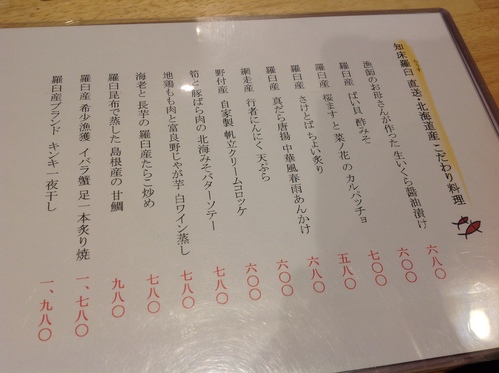 知床羅臼 直送・北海道産 こだわり料理
漁師のお母さんが作った 生いくら醤油漬け 六八〇
羅臼産 ばい貝 酢みそ 六〇〇
羅臼産 桜ます と 菜ノ花 の カルパッチョ 七〇〇
羅臼産 さけとば ちょい炙り 五八〇
羅臼産 真だら唐揚 中華風春雨あんかけ 六八〇
網走産 行者にんにく 天ぷら 六〇〇
野付産 自家製 帆立クリームコロッケ 六〇〇
筍と豚ばら肉の 北海みそバターソテー 七八〇
地鶏もも肉と富良野じゃが芋 白ワイン蒸し 七八〇
海老と 長芋の 羅臼産たらこ炒め 七八〇
羅臼昆布で蒸した 島根産の 甘鯛 九八〇
羅臼産 希少漁獲 イバラ蟹 足一本炙り焼 一、七八〇
羅臼産ブランド キンキ一夜干し 一、九八〇